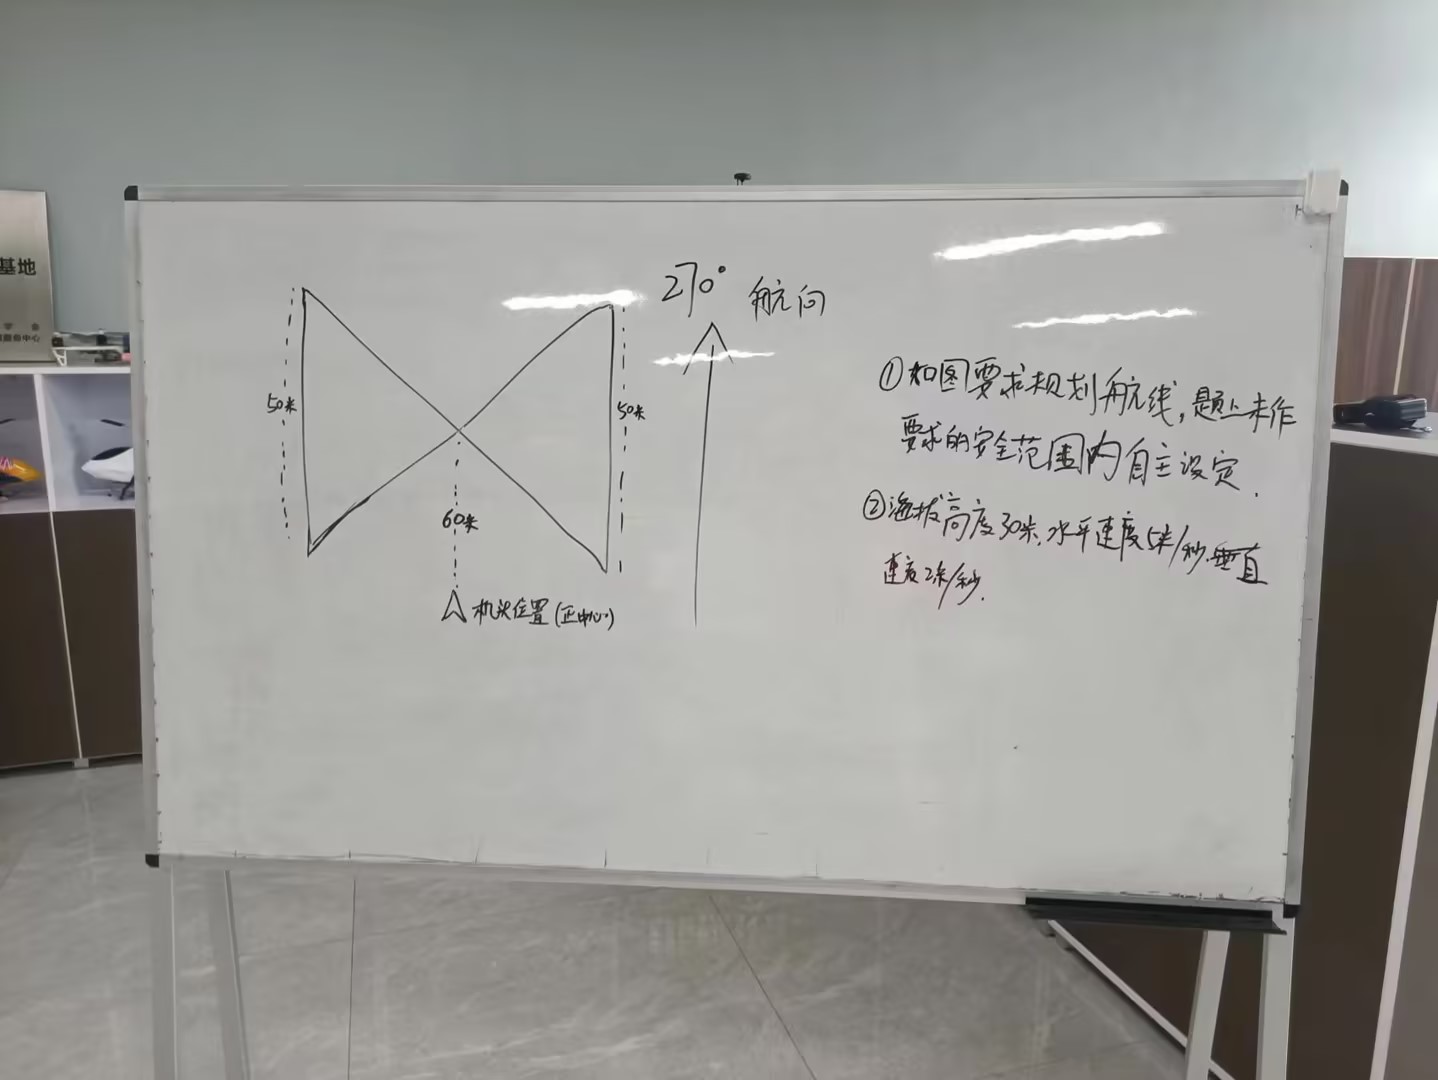 基地
270° 航向
50米
50米
60米
机头位置(正中心)
①如图要求规划航线,题上未作
要求的安全范围内自主设定.
②海拔高度30米,水平速度5米/秒.垂直
速度2米/秒.